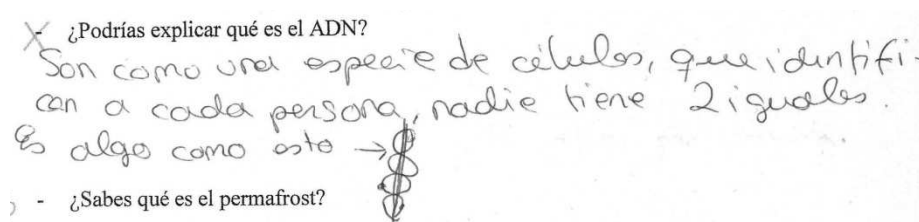 - ¿Podrías explicar qué es el ADN?
Son como una especie de células, que identifi-
can a cada persona, nadie tiene 2 iguales.
Es algo como esto →
- ¿Sabes qué es el permafrost?